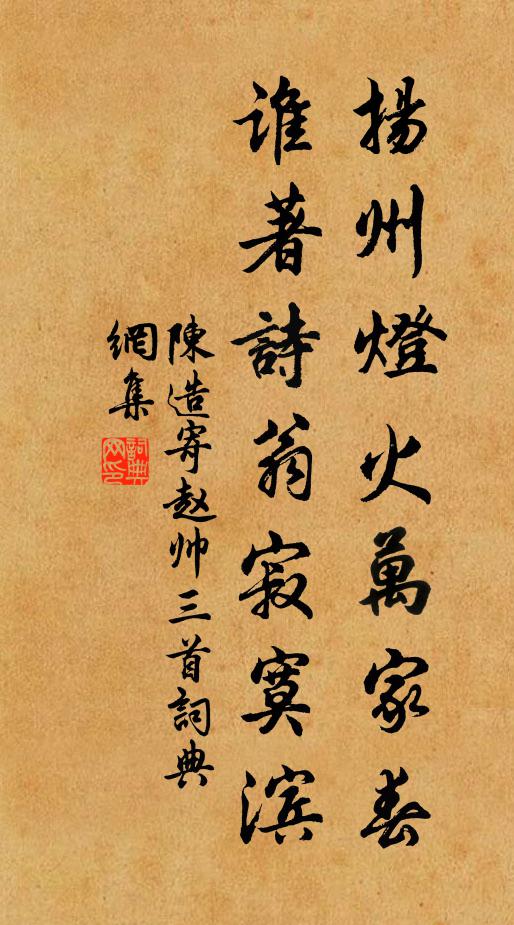 揚州燈火萬家春
誰著詩翁寂寞滨
陳造寄赵帅三首詞典
網集
詞典
网印